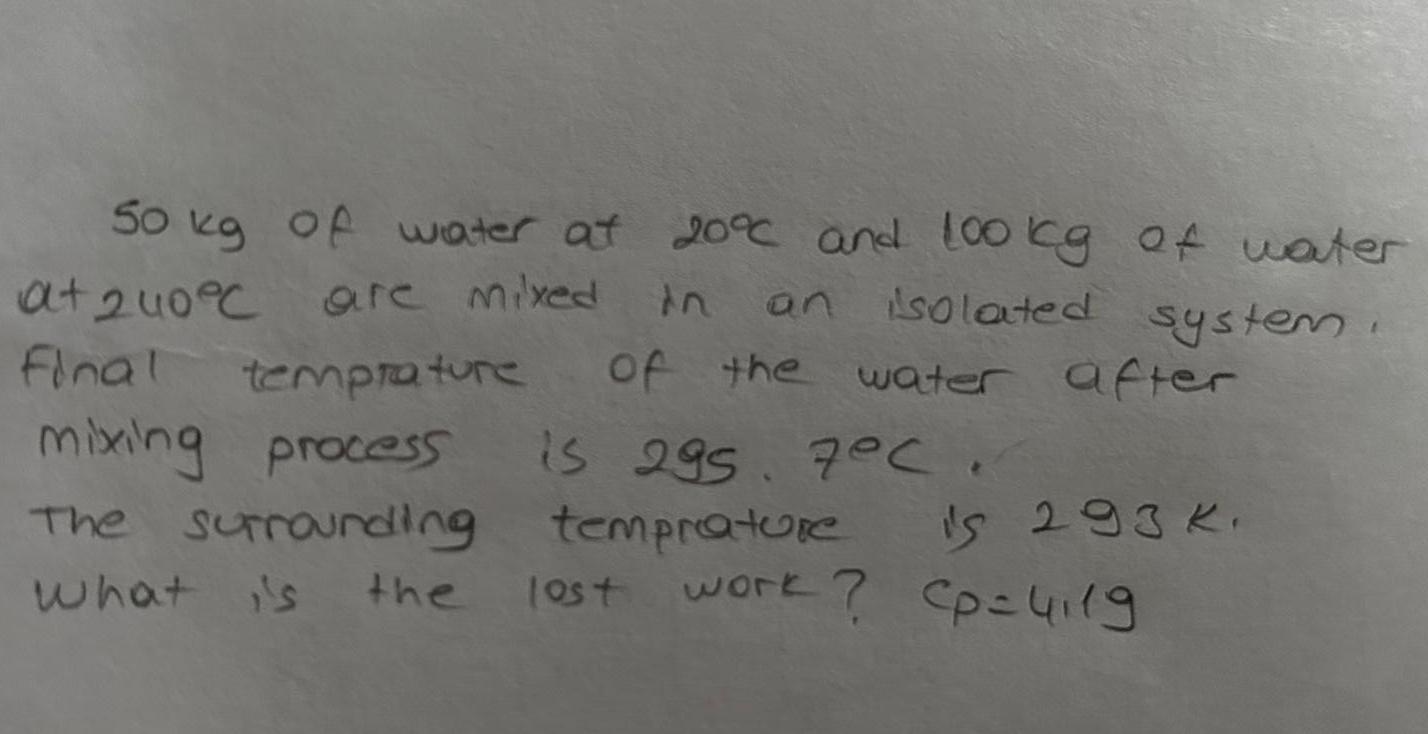 50 kg of water at 20°C and 100 kg of water
at 240°C are mixed in an isolated system.
Final temprature of the water after
mixing process is 295.7°C.
The surrounding temprature is 293 K.
What is the lost work? Cp=4,19